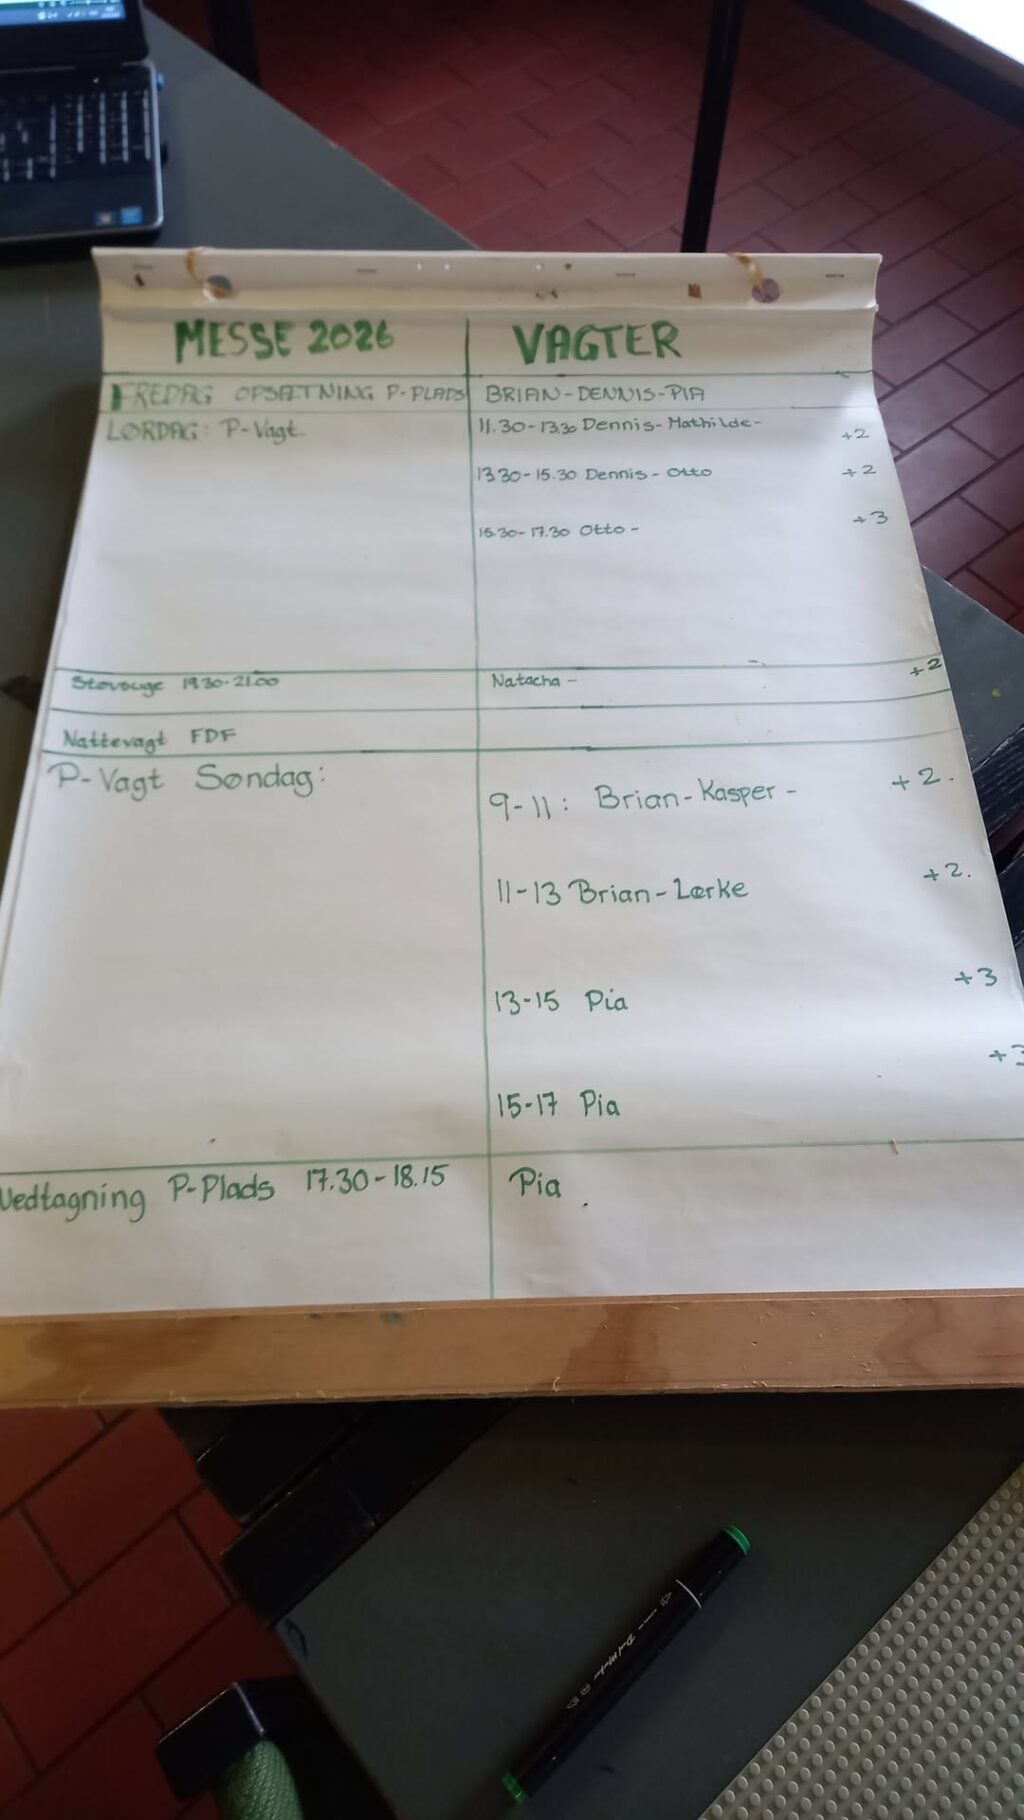 MESSE 2026 VAGTER
FREDAG OPSÆTNING P-PLADS BRIAN-DENNIS-PIA
LØRDAG: P-Vagt 11.30-13.30 Dennis-Mathilde- +2
13.30-15.30 Dennis-Otto +2
15.30-17.30 Otto- +3
Støvsuge 19.30-21.00 Natacha- +2
Nattevagt FDF
P-Vagt Søndag:
9-11: Brian-Kasper- +2.
11-13 Brian-Lærke +2.
13-15 Pia +3
15-17 Pia +3
Nedtagning P-Plads 17.30-18.15 Pia